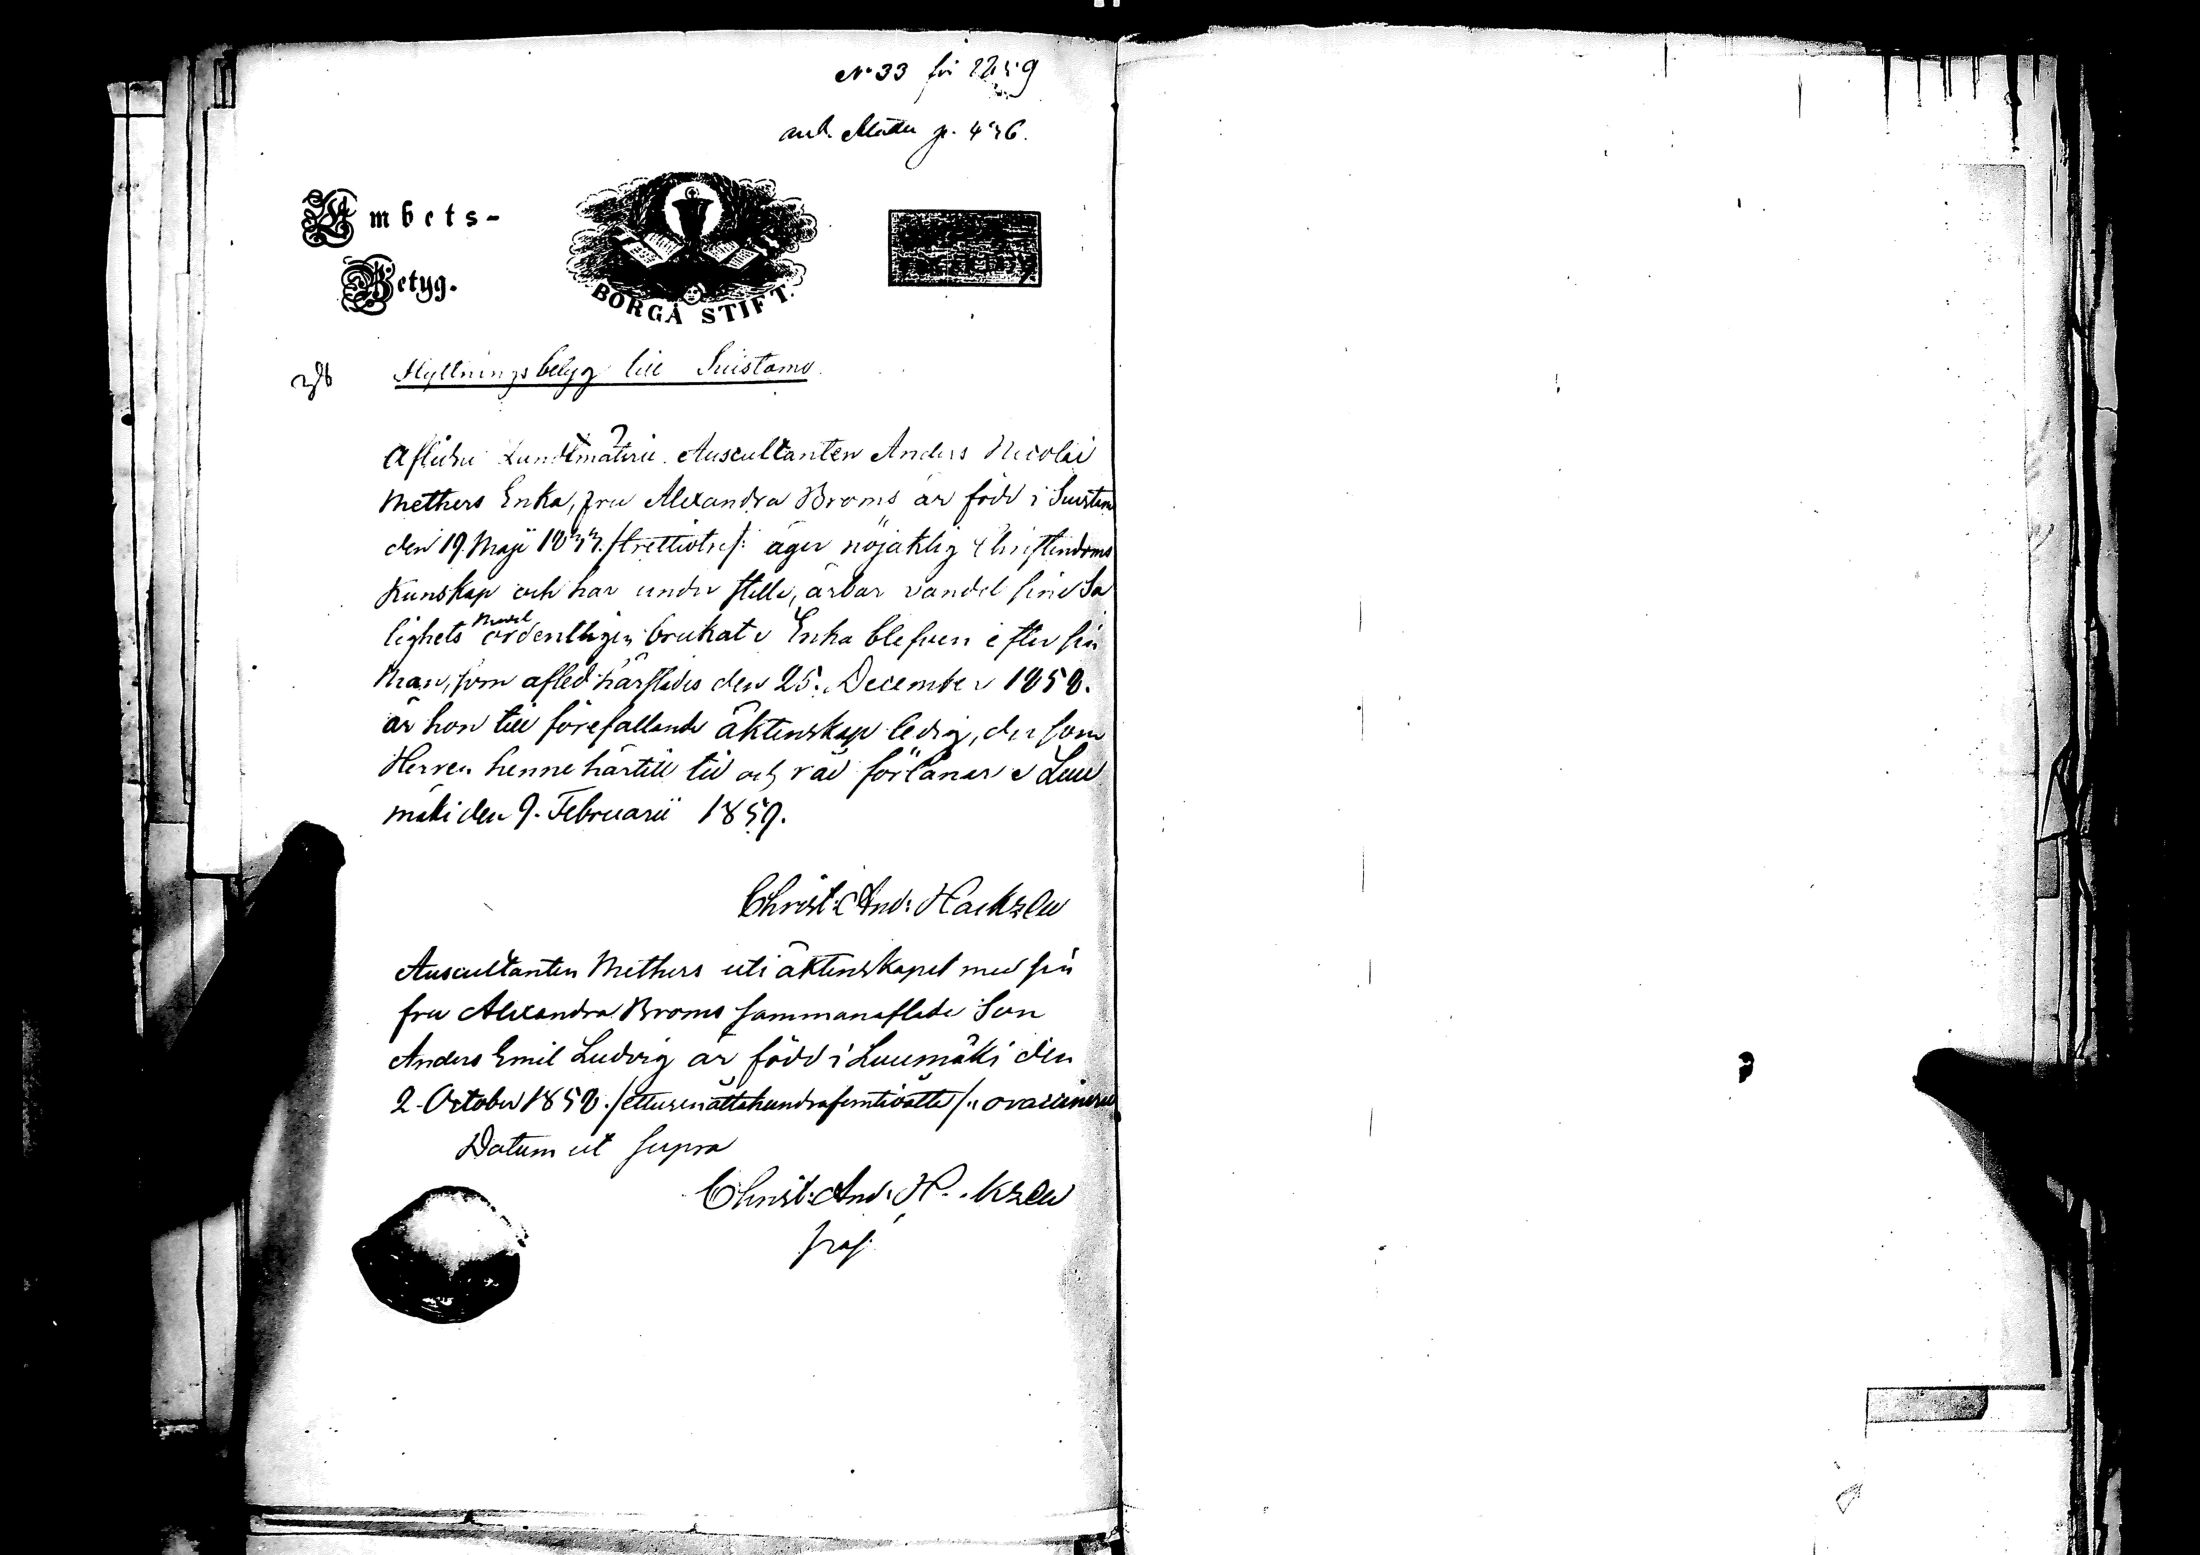 No 33 för 1859
anl. Mader p. 436.
Embets-
Betyg.
BORGÅ STIFT.
Flyttningsbetyg till Suistamo.
Aflidne Landtmäteri Auscultanten Anders Nicolai
Methers Enka, fru Alexandra Broms är född i Suistam
den 19 Maji 1833. /:trettiotre/: äger nöjaktig Christendoms
Kunskap och har under stilla, ärbar vandel sine Sa
lighets medel ordentligen brukat. Enka blefven efter sin
Man, som afled härstädes den 25. December 1858.
är hon till förefallande äktenskap ledig, der som
Herren henne härtill tid och råd förlänar. Luu
mäki den 9. Februarii 1859.
Christ: And: Hackzell
Auscultanten Methers uti äktenskapet med sin
fru Alexandra Broms sammanaflade Son
Anders Emil Ludvig är född i Luumäki den
2. October 1858. /:ettusenåttahundrafemtioåtta/: ovaccinerad
Datum ut supra
Christ: And: Hackzell